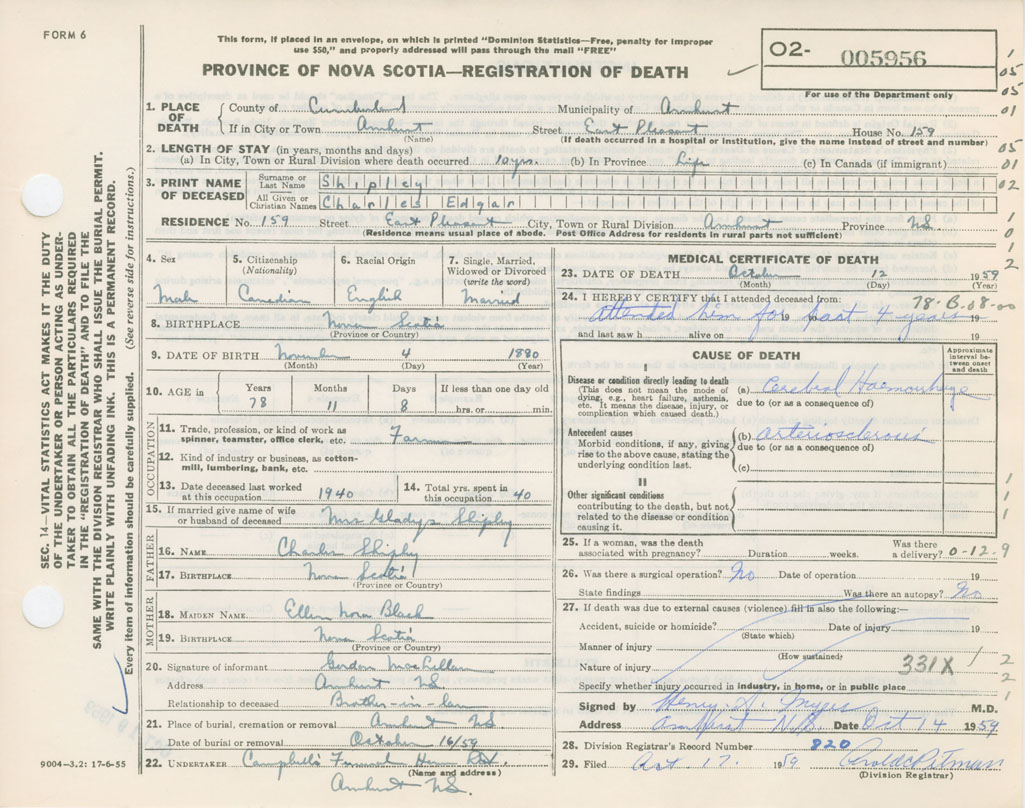 FORM 6
This form, if placed in an envelope, on which is printed "Dominion Statistics—Free, penalty for improper
use $50," and properly addressed will pass through the mail "FREE"
PROVINCE OF NOVA SCOTIA—REGISTRATION OF DEATH
O2- 005956
For use of the Department only
1. PLACE OF DEATH
County of Cumberland Municipality of Amherst
If in City or Town Amherst Street East Pleasant House No. 159
(Name) (If death occurred in a hospital or institution, give the name instead of street and number)
2. LENGTH OF STAY (in years, months and days)
(a) In City, Town or Rural Division where death occurred 10 yrs. (b) In Province Life (c) In Canada (if immigrant)
3. PRINT NAME OF DECEASED
Surname or Last Name Shipley
All Given or Christian Names Charles Edgar
RESIDENCE No. 159 Street East Pleasant City, Town or Rural Division Amherst Province NS.
(Residence means usual place of abode. Post Office Address for residents in rural parts not sufficient)
4. Sex Male
5. Citizenship (Nationality) Canadian
6. Racial Origin English
7. Single, Married, Widowed or Divorced (write the word) Married
8. BIRTHPLACE Nova Scotia
(Province or Country)
9. DATE OF BIRTH November 4 1880
(Month) (Day) (Year)
10. AGE in Years Months Days If less than one day old
78 11 8 hrs. or min.
OCCUPATION
11. Trade, profession, or kind of work as spinner, teamster, office clerk, etc. Farmer
12. Kind of industry or business, as cotton-mill, lumbering, bank, etc.
13. Date deceased last worked at this occupation 1940
14. Total yrs. spent in this occupation 40
15. If married give name of wife or husband of deceased Mrs Gladys Shipley
FATHER
16. NAME Charles Shipley
17. BIRTHPLACE Nova Scotia
(Province or Country)
MOTHER
18. MAIDEN NAME Ellen Nora Black
19. BIRTHPLACE Nova Scotia
(Province or Country)
20. Signature of informant Gordon MacLellan
Address Amherst NS.
Relationship to deceased Brother-in-law
21. Place of burial, cremation or removal Amherst NS
Date of burial or removal October 16/59
22. UNDERTAKER Campbell's Funeral Home
(Name and address)
Amherst NS.
MEDICAL CERTIFICATE OF DEATH
23. DATE OF DEATH October 12 1959
(Month) (Day) (Year)
24. I HEREBY CERTIFY that I attended deceased from:
78-B.08-00
Attended him for 19 past 4 years 19
and last saw h alive on 19
CAUSE OF DEATH
Approximate interval between onset and death
I
Disease or condition directly leading to death
(This does not mean the mode of dying, e.g., heart failure, asthenia, etc. It means the disease, injury, or complication which caused death.)
(a) Cerebral Haemorrhage
due to (or as a consequence of)
Antecedent causes
Morbid conditions, if any, giving rise to the above cause, stating the underlying condition last.
(b) Arteriosclerosis
due to (or as a consequence of)
(c)
II
Other significant conditions
contributing to the death, but not related to the disease or condition causing it.
25. If a woman, was the death associated with pregnancy? Duration weeks. Was there a delivery? 0-12-9
26. Was there a surgical operation? No Date of operation 19
State findings Was there an autopsy? No
27. If death was due to external causes (violence) fill in also the following:—
Accident, suicide or homicide? Date of injury 19
(State which)
Manner of injury
(How sustained)
Nature of injury 331X
Specify whether injury occurred in industry, in home, or in public place
Signed by Henry A. Myers M.D.
Address Amherst N.S. Date Oct 14 1959
28. Division Registrar's Record Number 820
29. Filed Oct. 17. 1959
(Division Registrar)
9004-3.2: 17-6-55
SEC. 14—VITAL STATISTICS ACT MAKES IT THE DUTY
OF THE UNDERTAKER OR PERSON ACTING AS UNDER-
TAKER TO OBTAIN ALL THE PARTICULARS REQUIRED
IN THE "REGISTRATION OF DEATH" AND TO FILE THE
SAME WITH THE DIVISION REGISTRAR WHO SHALL ISSUE THE BURIAL PERMIT.
WRITE PLAINLY WITH UNFADING INK. THIS IS A PERMANENT RECORD.
Every item of information should be carefully supplied. (See reverse side for instructions.)
1
05
05
01
05
01
02
1
0
1
2
1
1
1
1
2
2
1